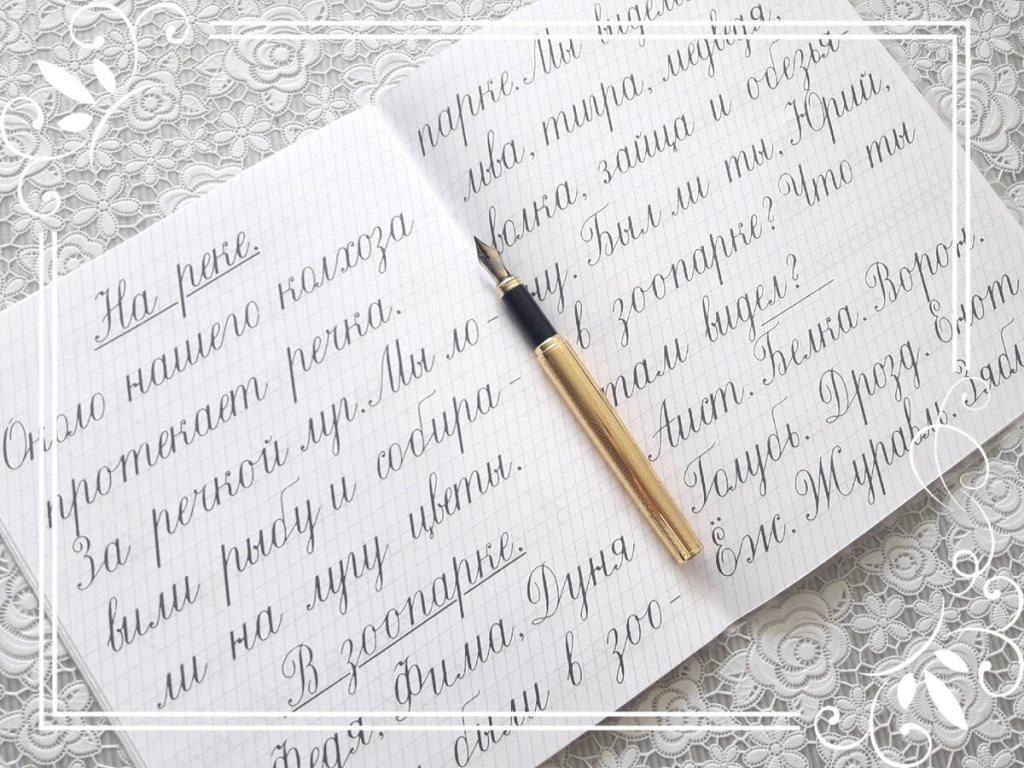 На реке.
Около нашего колхоза
протекает речка.
За речкой луг. Мы ло-
вили рыбу и собира-
ли на лугу цветы.
В зоопарке.
Федя, Фима, Дуня
были в зоо-
парке. Мы видели
льва, тигра, медведя,
волка, зайца и обезья-
ну. Был ли ты, Юрий,
в зоопарке? Что ты
там видел?
Аист. Белка. Ворон.
Голубь. Дрозд. Енот
Ёж. Журавль.